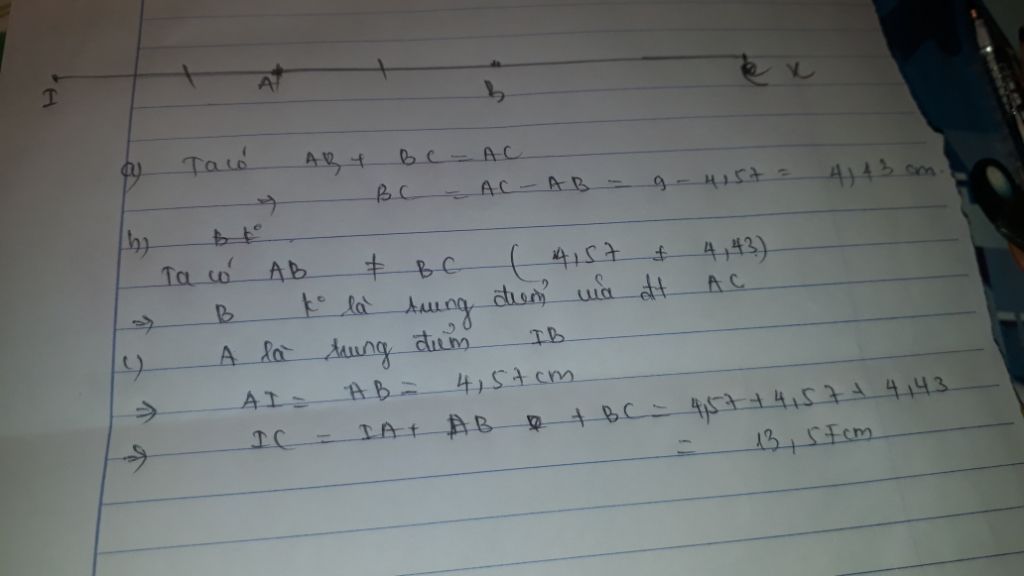 I A B C x
a) Ta có AB + BC = AC
⇒ BC = AC - AB = 9 - 4,57 = 4,43 cm.
b) B k°
Ta có AB ≠ BC ( 4,57 ≠ 4,43)
⇒ B k° là trung điểm của đt AC
c) A là trung điểm IB
⇒ AI = AB = 4,57cm
⇒ IC = IA + AB + BC = 4,57 + 4,57 + 4,43
= 13,57cm